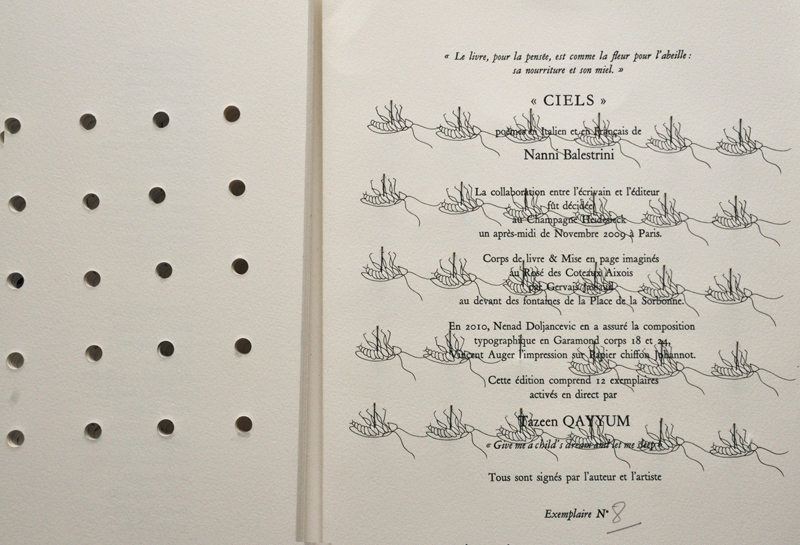 « Le livre, pour la pensée, est comme la fleur pour l'abeille :
sa nourriture et son miel. »
« CIELS »
poèmes en Italien et en Français de
Nanni Balestrini
La collaboration entre l'écrivain et l'éditeur
fût décidée
au Champagne Heidsieck
un après-midi de Novembre 2009 à Paris.
Corps de livre & Mise en page imaginés
au Rosé des Coteaux Aixois
par Gervais
au devant des fontaines de la Place de la Sorbonne.
En 2010, Nenad Doljancevic en a assuré la composition
typographique en Garamond corps 18 et 24,
Vincent Auger l'impression sur Papier chiffon Johannot.
Cette édition comprend 12 exemplaires
activés en direct par
Tazeen QAYYUM
« Give me a child's dream and let me sleep »
Tous sont signés par l'auteur et l'artiste
Exemplaire N° 8